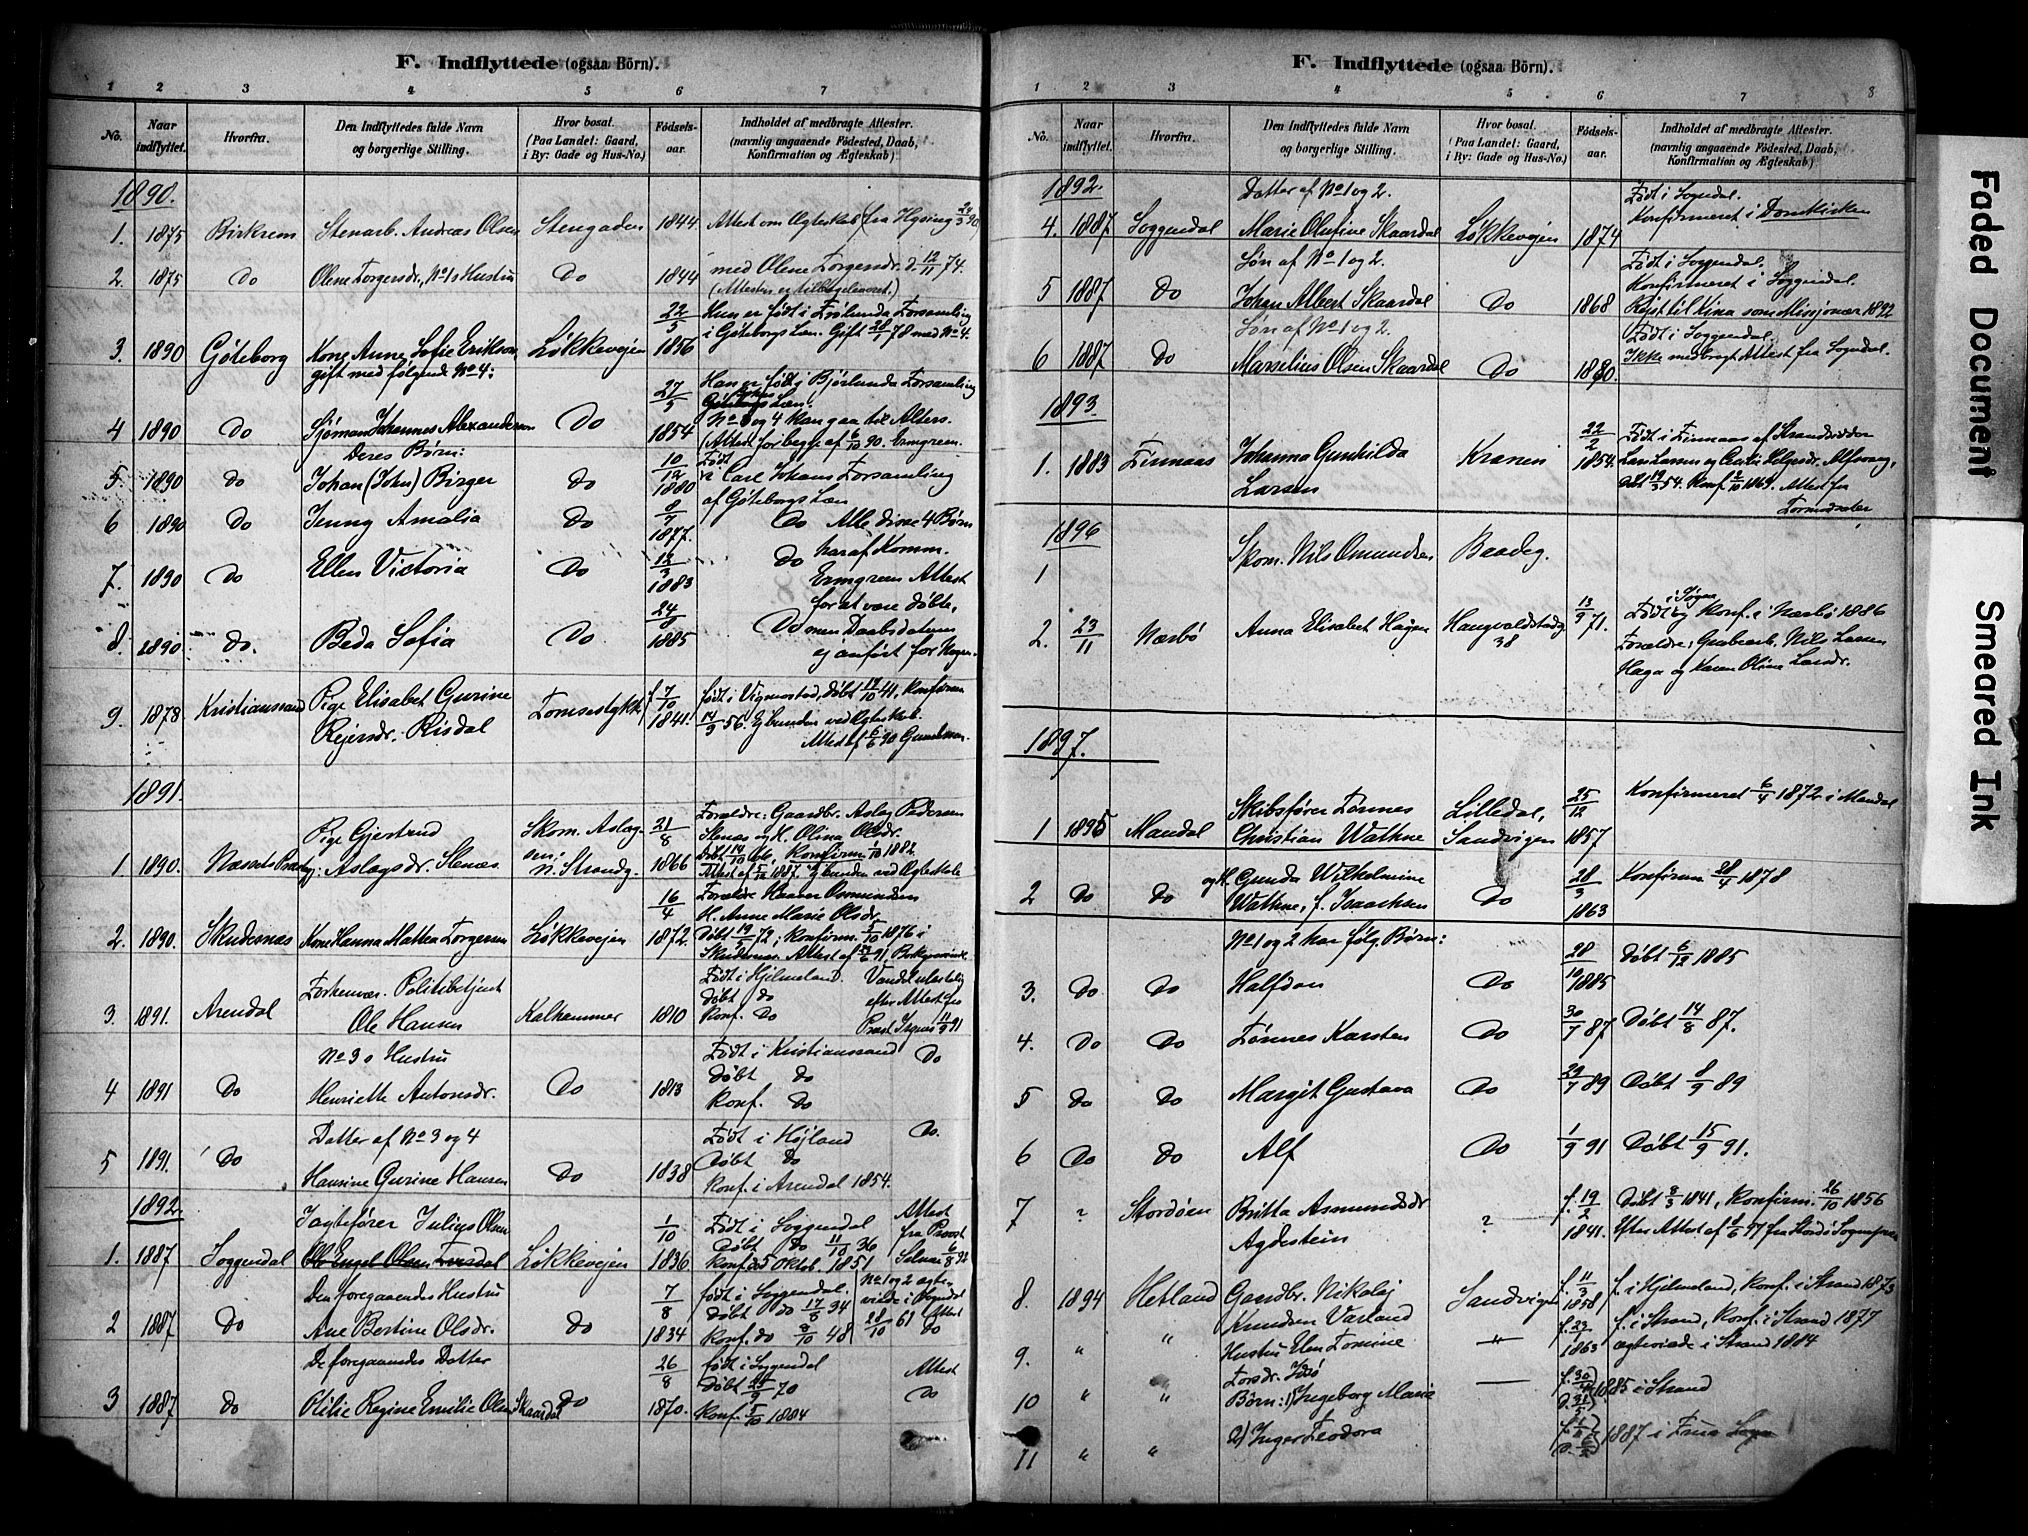 F. Indflyttede (ogsaa Börn).
1 2 3 4 5 6 7
No. Naar indflyttet. Hvorfra. Den Indflyttedes fulde Navn og borgerlige Stilling. Hvor bosat. (Paa Landet: Gaard, i By: Gade og Hus-No.) Fødsels-aar. Indholdet af medbragte Attester. (navnlig angaaende Födested, Daab, Konfirmation og Ægteskab)
1890.
1. 1875 Birkrem Stenarb. Andreas Olsen Stengaden 1844 Attest om Ægteskab (fra Hysing 24/3 90)
2. 1875 Do Olene Torgersdr., No 1s Hustru Do 1844 med Olene Torgersdr. d. 12/11 74.
(Attesten er tilbageleveret.)
22/5 Hun er født i Frölunda Forsamling
3. 1890 Göteborg Kone Anne Sofie Erikson Løkkevejen 1856 i Göteborgs Læn. Gift 28/1 78 med No 4.
gift med følgende No 4:
27/5 Han er født i Björlunda Forsamling
Göteborgs Læn.
4 1890 Do Sjømand Johannes Alexanderson Do 1854 No 3 og 4 kan gaa til Alters.
Deres Børn: (Attest for begge af 6/10 90. Ermgreen.
5. 1890 Do Johan (John) Birger Do 10/12 1880 Født i Carl Johans Forsamling
af Göteborgs Læn
6 1890 Do Jenny Amalia Do 8/7 1877. Do Alle disse 4 Børn
7. 1890 Do Ellen Victoria Do 12/3 1883 Do har af Komm.
Ermgreen Attest
for at være døbte,
8. 1890. Do. Beda Sofia Do 24/8 1885 Do men Daabsdatoen
ej anført for Nogen.
9. 1878 Kristianssand Pige Elisabet Gurine Tomsestykke f. 7/10 1841. født i Vigmostad, døbt 17/10 41, Konfirm.
Rejersdr. Risdal 14/9 56. Ej bunden ved Ægteskab.
Attest af 6/6 90 Gundersen.
1891.
Pige Gjertrud Skom. Aslag- 21/8 Forældre: Gaardbr. Aslag Pedersen
Stenæs og H. Olina Olsdr.
1 1890. Næsset Præstg: Aslagsdr. Stenæs sen; n. Strandg. 1866 Døbt 14/10 66, Konfirm. 1/10 1882
Attest af 5/12 1887. Ej bunden ved Ægteskab
16/4 Forældre Haaver Osmundsen
H. Anne Marie Olsdr.
2. 1890. Skudesnæs Kone Hanna Mattea Torgersen Løkkevejen 1872. Døbt 19/5 72; Konfirm. 5/10 1876 i
Skudesnæs. Attest af 19/6 91,
Forhenvær. Politibetjent Født i Hjelmeland.
3. 1891. Arendal Ole Hansen Kalhammer 1810 Døbt do efter Attest fra
Konf. Do Præst 11/9 91
No 3s Hustru Født i Kristianssand Do
4 1891 Do Henriette Antonsdr. Do 1813 Døbt do
Konf. Do
Datter af No 3 og 4 Født i Højland Do.
5 1891. Do Hansine Gurine Hansen Do 1838 Døbt Do
Konf. i Arendal 1854.
1892.
Jagtefører Julius Olsen 1/10 Født i Soggendal Attest
Døbt Do 11/10 36 fra Provst
1. 1887 Soggendal Løkkevejen 1836 Konf. 5 Oktob. 1851 6/8 92
Den foregaaendes Hustru 7/8 født i Soggendal. No 1 og 2 ægte-
Døbt do 17/8 34 viede i Sogndal
2 1887 Do Ane Bertine Olsdr. Do 1834 Konf. do 8/10 48 28/10 61 Attest do
De foregaaendes Datter 26/8 født i Soggendal Attest
Døbt 25/9 70
3 1887 Do Otilie Regine Emilie Olsen Skaardal Do 1870. Konf. 5/10 1884 Do
F. Indflyttede (ogsaa Börn).
1 2 3 4 5 6 7 8
No. Naar indflyttet. Hvorfra. Den Indflyttedes fulde Navn og borgerlige Stilling. Hvor bosat. (Paa Landet: Gaard, i By: Gade og Hus-No.) Fødsels-aar. Indholdet af medbragte Attester. (navnlig angaaende Födested, Daab, Konfirmation og Ægteskab)
1892.
Datter af No 1 og 2. Født i Sogndal.
4. 1887 Soggendal Marie Olufine Skaardal Løkkevejen 1874 Konfirmeret i Domkirken
Søn af No 1 og 2. Født i Soggendal.
Konfirmeret i Soggendal.
5 1887 Do Johan Albert Skaardal Do 1868 Rejst til Kina som Missjonær 1892
Søn af No 1 og 2. Født i Soggendal.
6 1887 Do Marselius Olsen Skaardal Do 1880. Ikke medbragt Attest fra Sogndal.
1893.
22/2 Født i Finnaas af Strandsidder
1. 1883 Finnaas Johanna Gunhilda Kranen 1854. Lars Larsen og Helgesdr.
Larsen Døbt 19/3 54. Konf. 1869. Attest fra
1896
1 Skom. Nils Omundsen Baadeg.
i Søgen
2. 23/11 Nærbø Anna Elisabet Hagen Haugvaldstadg. 38 13/9 71. Født og Konf. i Nærbø 1886
Forældre: Nils Larsen
Haga og Karen Olina Larsdr.
1897.
Skibsfører Tønnes Lilledal, 25/12 Konfirmeret 6/4 1872 i Mandal
1 1895 Mandal Christian Wathne Sandvigen 1857
og H. Gunda Wilhelmine 28/3 Konfirm. 28/4 1878
2 Do Do Wathne, f. Isaachsen Do 1863
No 1 og 2 har følg. Børn: 28/10 Døbt 6/12 1885
3. Do Do Halfdan Do 1885
4. Do Do Tønnes Karsten Do 30/7 87 Døbt 14/8 87.
5 Do Do Margit Gustava Do 29/7 89 Døbt 8/9 89
6 Do Do Alf Do 1/9 91 Døbt 15/9 91.
7 ? Stordøen Britta Asmundsdr ? f. 19/2 Døbt 8/3 1841, Konfirm. 26/10 1856
Agdestein 1841. Efter Attest af 97 fra Stord Sognepræst
8. 1894 Hetland Gaardbr. Nikolaj Sandvigen f. 11/3 1858 f. i Hjelmeland, Konf. i Strand 1873
Knudsen Varland f. 23/1 f. i Strand, Konf. i Strand 1877
9. " " Hustru Elen Tomine " 1863 ægteviede i Strand 1884
Torsdr.
10 " " Børn: 1) Ingeborg Maria f. 30/4 1885 i Strand
D. 31/5
11 " " 2) Inger Teodora 1887 i Frue Sogn
Faded Document
Smeared Ink